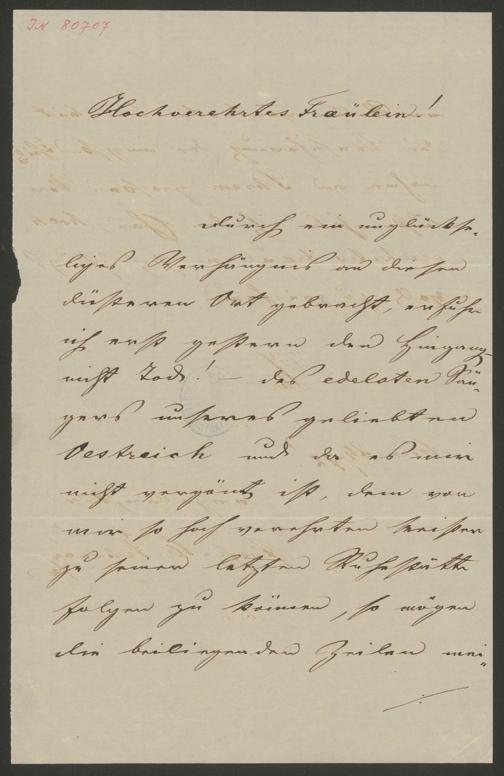 IN 80707
Hochverehrtes Fräulein!
durch ein unglückse-
liges Verhängnis an diesen
düsteren Ort gebracht, erfuhr
ich erst gestern den Hingang,
nicht Tod! – des edelsten Sän-
gers unseres geliebten
Oestreich und da es mir
nicht vergönt ist, dem von
mir so hoch verehrten Meister
zu seiner letzten Ruhestätte
folgen zu können, so mögen
die beiliegenden Zeilen mei-